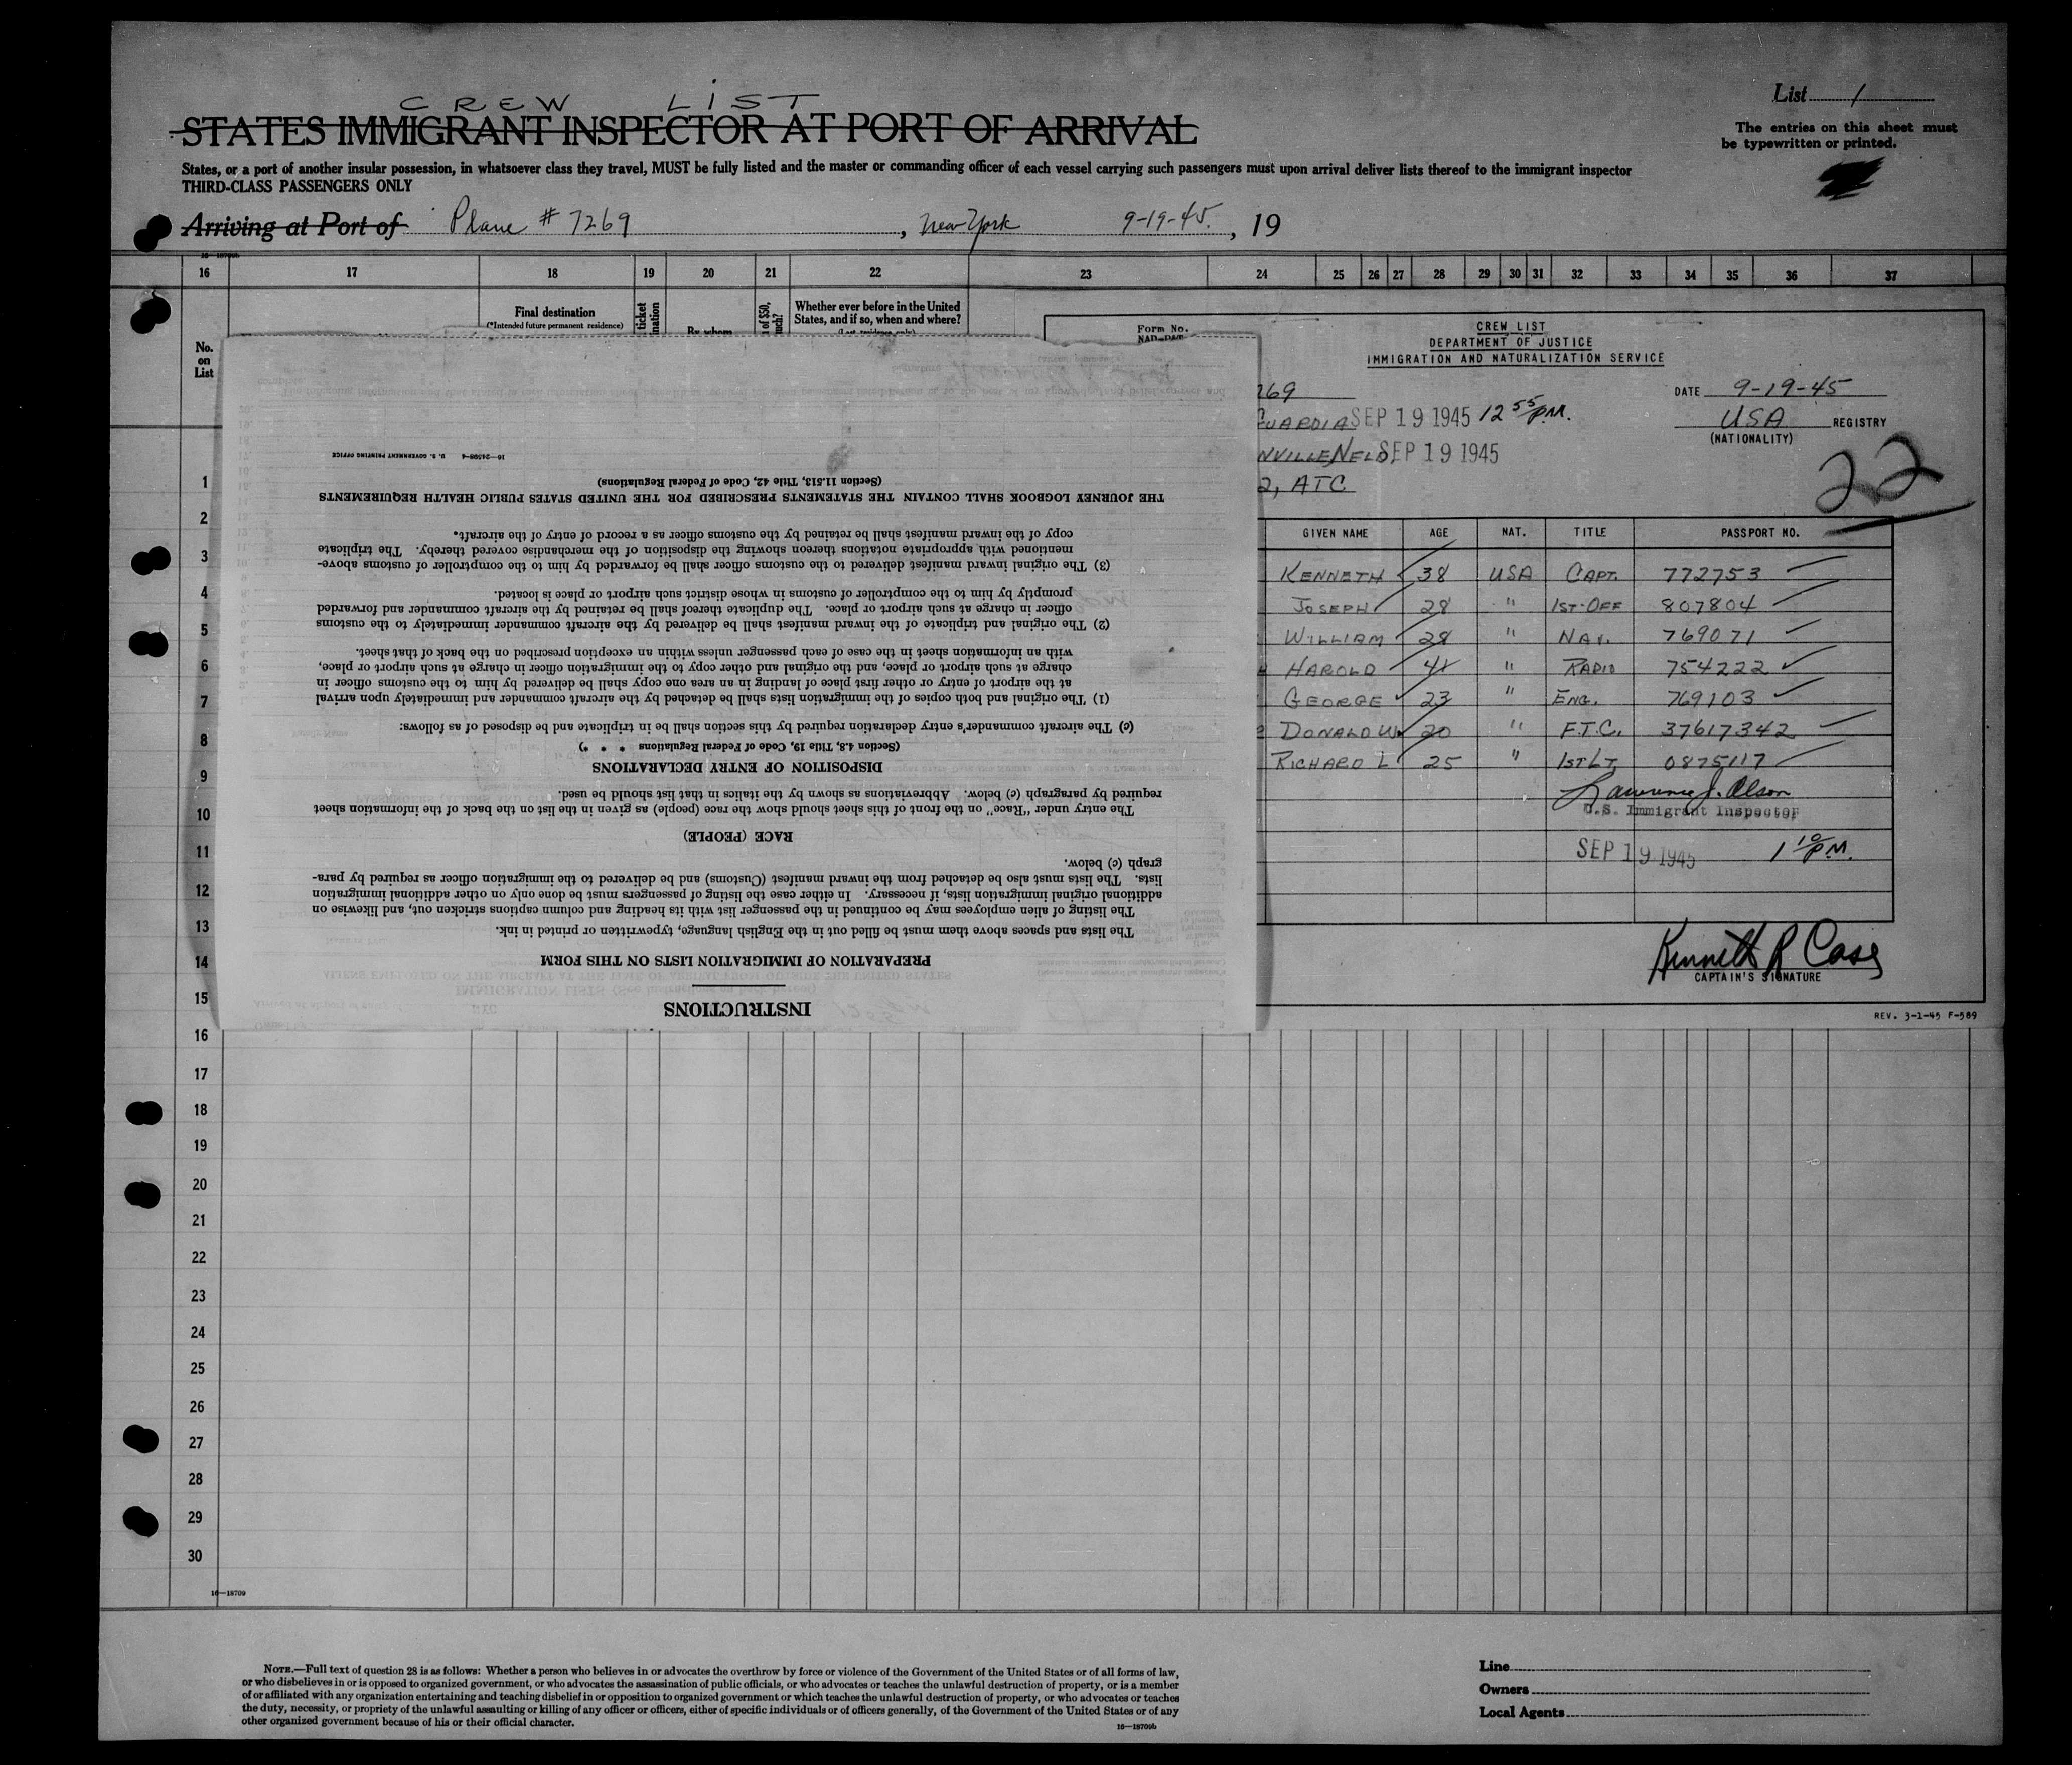 CREW LIST
STATES IMMIGRANT INSPECTOR AT PORT OF ARRIVAL
List 1
The entries on this sheet must
be typewritten or printed.
States, or a port of another insular possession, in whatsoever class they travel, MUST be fully listed and the master or commanding officer of each vessel carrying such passengers must upon arrival deliver lists thereof to the immigrant inspector
THIRD-CLASS PASSENGERS ONLY
Arriving at Port of Plane # 7269, New York 9-19-45., 19
16 17 18 19 20 21 22 23 24 25 26 27 28 29 30 31 32 33 34 35 36 37
No.
on
List
Final destination
(*Intended future permanent residence)
ticket
nation
By whom
of $50,
much?
Whether ever before in the United
States, and if so, when and where?
Form No.
CREW LIST
DEPARTMENT OF JUSTICE
IMMIGRATION AND NATURALIZATION SERVICE
269
DATE 9-19-45
GUARDIA SEP 19 1945 12 55 P.M.
USA REGISTRY
(NATIONALITY)
SEP 19 1945
2, ATC
22
GIVEN NAME AGE NAT. TITLE PASSPORT NO.
KENNETH 38 USA CAPT. 772753
JOSEPH 28 " 1ST-OFF 807804
WILLIAM 28 " NAV. 769071
HAROLD 41 " RADIO 754222
GEORGE 23 " ENG. 769103
DONALD W. 20 " F.T.C. 37617342
RICHARD L 25 " 1ST LT 0875117
Lawrence J. Olson
U.S. Immigrant Inspector
SEP 19 1945 1 10 P.M.
Kenneth R Case
CAPTAIN'S SIGNATURE
REV. 3-1-45 F-589
INSTRUCTIONS
PREPARATION OF IMMIGRATION LISTS ON THIS FORM
The lists and spaces above them must be filled out in the English language, typewritten or printed in ink.
The listing of alien employees may be continued in the passenger list with its heading and column captions stricken out, and likewise on
additional original immigration lists, if necessary. In either case the listing of passengers must be done only on other additional immigration
lists. The lists must also be detached from the inward manifest (Customs) and be delivered to the immigration officer as required by para-
graph (c) below.
RACE (PEOPLE)
The entry under "Race" on the front of this sheet should show the race (people) as given in the list on the back of the information sheet
required by paragraph (c) below. Abbreviations as shown by the italics in that list should be used.
DISPOSITION OF ENTRY DECLARATIONS
(Section 4.8, Title 19, Code of Federal Regulations * * *)
(c) The aircraft commander's entry declaration required by this section shall be in triplicate and be disposed of as follows:
(1) The original and both copies of the immigration lists shall be detached by the aircraft commander and immediately upon arrival
at the airport of entry or other first place of landing in an area one copy shall be delivered by him to the customs officer in
charge at such airport or place, and the original and other copy to the immigration officer in charge at such airport or place,
with an information sheet in the case of each passenger unless within an exception prescribed on the back of that sheet.
(2) The original and triplicate of the inward manifest shall be delivered by the aircraft commander immediately to the customs
officer in charge at such airport or place. The duplicate thereof shall be retained by the aircraft commander and forwarded
promptly by him to the comptroller of customs in whose district such airport or place is located.
(3) The original inward manifest delivered to the customs officer shall be forwarded by him to the comptroller of customs above-
mentioned with appropriate notations thereon showing the disposition of the merchandise covered thereby. The triplicate
copy of the inward manifest shall be retained by the customs officer as a record of entry of the aircraft.
THE JOURNEY LOGBOOK SHALL CONTAIN THE STATEMENTS PRESCRIBED FOR THE UNITED STATES PUBLIC HEALTH REQUIREMENTS
(Section 11.513, Title 42, Code of Federal Regulations)
16—24598-4 U. S. GOVERNMENT PRINTING OFFICE
1
2
3
4
5
6
7
8
9
10
11
12
13
14
15
16
17
18
19
20
21
22
23
24
25
26
27
28
29
30
16—18709
NOTE.—Full text of question 28 is as follows: Whether a person who believes in or advocates the overthrow by force or violence of the Government of the United States or of all forms of law,
or who disbelieves in or is opposed to organized government, or who advocates the assassination of public officials, or who advocates or teaches the unlawful destruction of property, or is a member
of or affiliated with any organization entertaining and teaching disbelief in or opposition to organized government or which teaches the unlawful destruction of property, or who advocates or teaches
the duty, necessity, or propriety of the unlawful assaulting or killing of any officer or officers, either of specific individuals or of officers generally, of the Government of the United States or of any
other organized government because of his or their official character.
16—18709b
Line
Owners
Local Agents